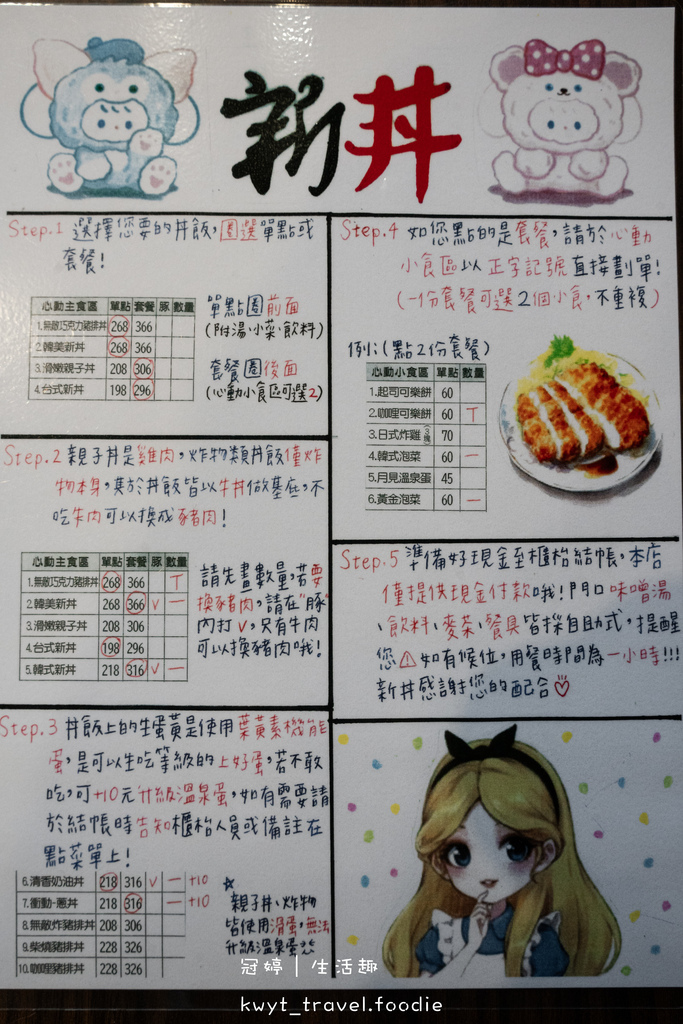 新丼
Step.1 選擇您要的丼飯，圈選單點或
套餐！
心動主食區 單點 套餐 豚 數量
1.無敵巧克力豬排丼 268 366
2.韓美新丼 268 366
3.滑嫩親子丼 208 306
4.台式新丼 198 296
單點圈前面
(附湯、小菜、飲料)
套餐圈後面
(心動小食區可選2)
Step.2 親子丼是雞肉，炸物類丼飯僅炸
物本身，其於丼飯皆以牛丼做基底，不
吃牛肉可以換成豬肉！
心動主食區 單點 套餐 豚 數量
1.無敵巧克力豬排丼 268 366 T
2.韓美新丼 268 366 V 一
3.滑嫩親子丼 208 306
4.台式新丼 198 296
5.韓式新丼 218 316 V 一
請先畫數量，若要
換豬肉，請在"豚"
內打V，只有牛肉
可以換豬肉哦！
Step.3 丼飯上的生蛋黃是使用葉黃素機能
蛋，是可以生吃等級的上好蛋，若不敢
吃，可+10元升級溫泉蛋，如有需要請
於結帳時告知櫃枱人員或備註在
點菜單上！
6.清香奶油丼 218 316 V 一 +10
7.衝動-蔥丼 218 316 一 +10
8.無敵炸豬排丼 208 306
9.柴燒豬排丼 228 326
10.咖哩豬排丼 228 326
☆
親子丼、炸物
皆使用滑蛋，無法
升級溫泉蛋
Step.4 如您點的是套餐，請於心動
小食區以正字記號直接劃單！
(一份套餐可選2個小食，不重複)
例：(點2份套餐)
心動小食區 單點 數量
1.起司可樂餅 60
2.咖哩可樂餅 60 T
3.日式炸雞(3塊) 70
4.韓式泡菜 60 一
5.月見溫泉蛋 45
6.黃金泡菜 60 一
Step.5 準備好現金至櫃枱結帳，本店
僅提供現金付款哦！門口味噌湯
、飲料、麥茶、餐具皆採自助式，提醒
您⚠如有候位，用餐時間為一小時!!!
新丼感謝您的配合♡
冠婷｜生活趣
kwyt_travel.foodie